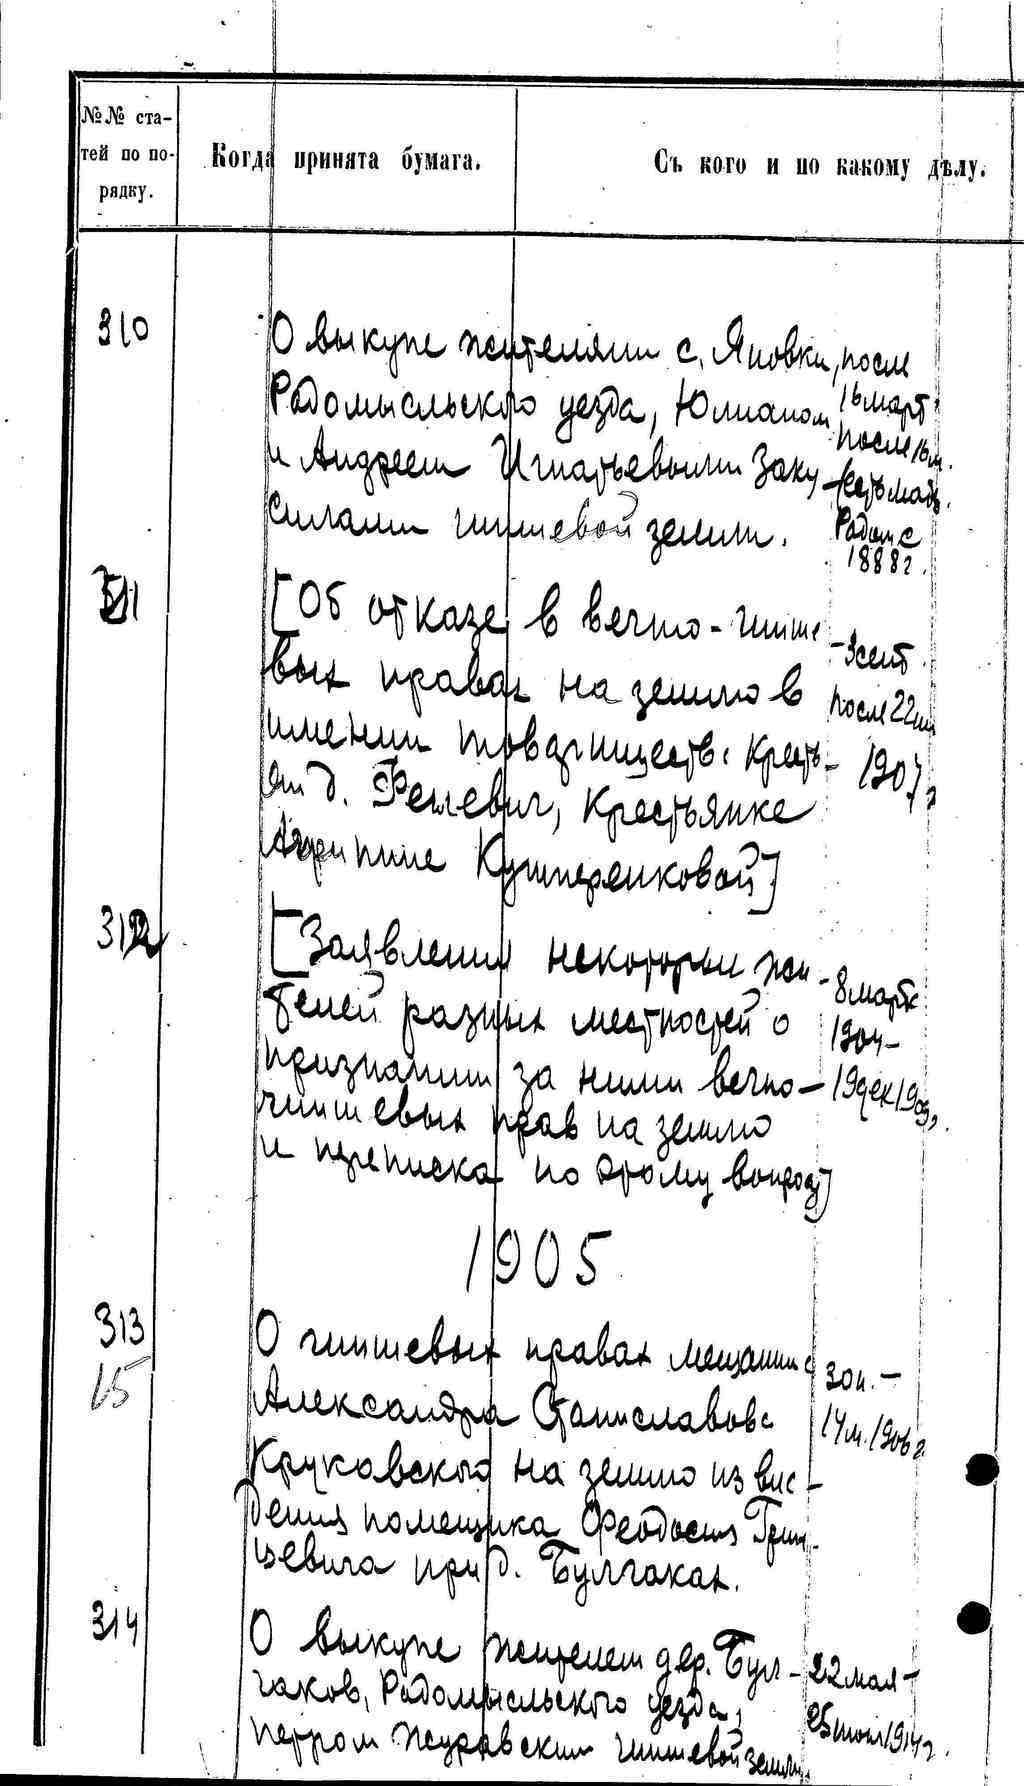 №№ ста-
тей по по-
рядку.
Когда принята бумага.
Съ кого и по какому дѣлу.
310
О выкупе жителями с. Яновки,
Радомысльского уезда, Юлианом
и Андреем Игнатьевыми Заку-
силами чиншевой земли.
после
16 март
после 16 м.
Радом с
1888 г.
311
[Об отказе в вечно-чинше
вых правах на землю в
имении товариществ. кресть-
ян д. Феневич, крестьянке
Агрипине Кушнеренковой]
3 сент
после 22
1907 г
312
[Заявления некоторых жи-
телей разных местностей о
признании за ними вечно-
чиншевых прав на землю
и переписка по этому вопросу]
8 марта
1904-
19 дек 1909 г.
1905
313
15
О чиншевых правах мещанина
Александра Станиславова
Круковского на землю из вла-
дения помещика Феодосия Грин-
цевича при д. Булгаках.
14 м. 1906 г
314
О выкупе жителем дер. Бул-
гаков, Радомысльского уезда,
Петром Журавским чиншевой земли
22 мая-
25 июл 1914 г.